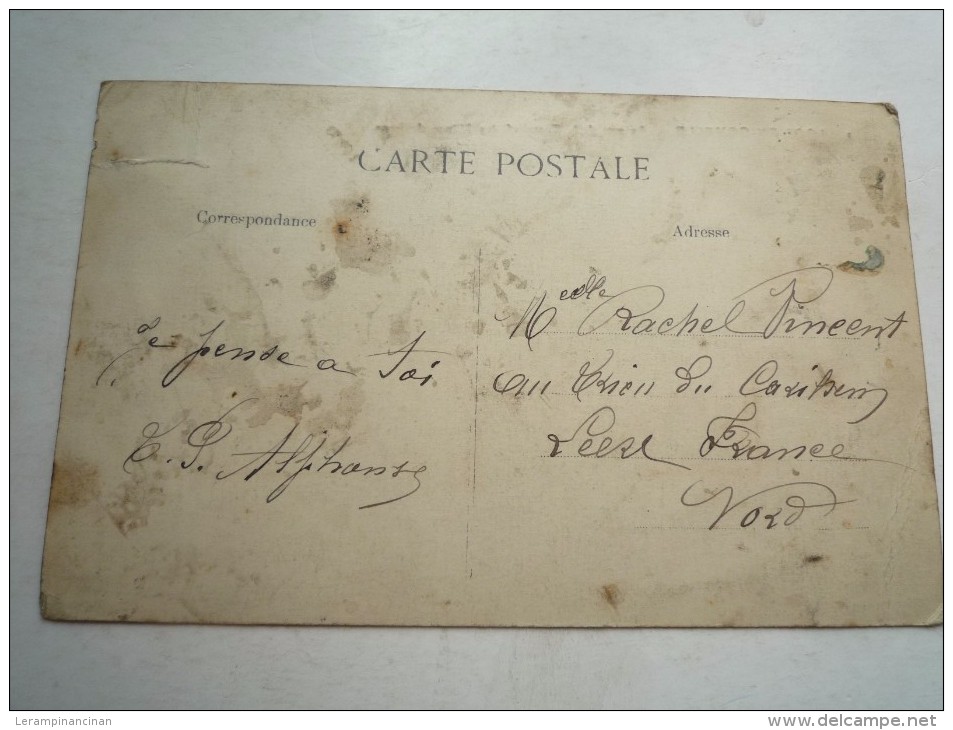 CARTE POSTALE
Correspondance
Adresse
Je pense a toi
T. P. Alphonse
Melle Rachel Vincent
au Trieu du
Leers France
Nord
Lerampinancinan
www.delcampe.net